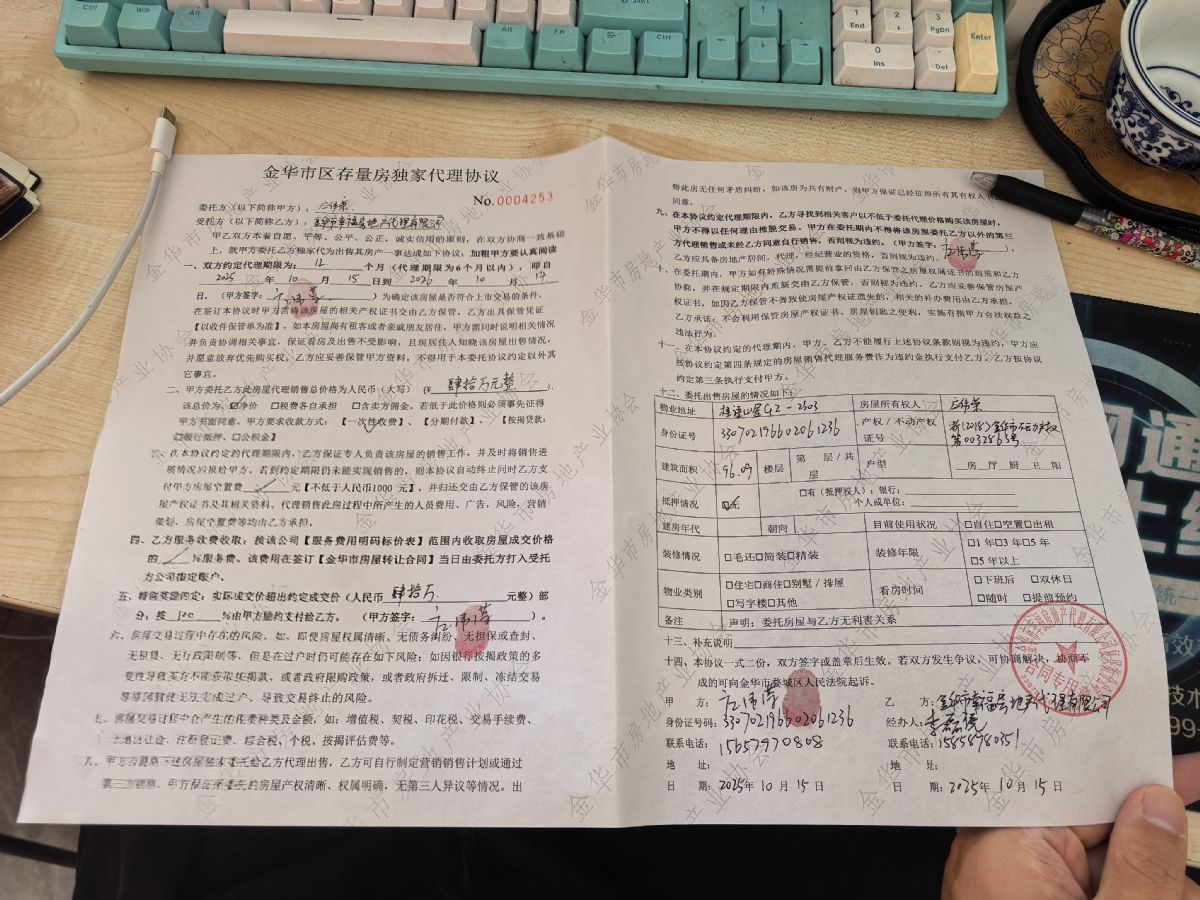 Ctrl
Win
Alt
Alt
Fn
Ctrl
1
End
2
3
PgDn
Enter
0
Ins
.
Del
金华市区存量房独家代理协议
No.0004253
委托方（以下简称甲方）：
受托方（以下简称乙方）：金华市幸福房地产代理有限公司
甲乙双方本着自愿、平等、公平、公正，诚实信用的原则，在双方协商一致基础
上，就甲方委托乙方独家代为出售其房产一事达成如下协议：加粗甲方要认真阅读
一、双方约定代理期限为： 12 个月（代理期限为6个月以内），即自
2025 年 10 月 15 日到 2026 年 10 月 14
日。（甲方签字： ）为确定该房屋是否符合上市交易的条件，
在签订本协议时甲方需将该房屋的相关产权证书交由乙方保管，乙方出具保管凭证
【以收件保管单为准】，如本房屋尚有租客或者亲戚朋友居住，甲方需同时说明相关情况
并负责协调相关事宜，保证看房及出售不受影响，且现居住人知晓该房屋出售情况，
并愿意放弃优先购买权。乙方应妥善保管甲方资料，不得用于本委托协议约定以外其
它事宜。
二、甲方委托乙方此房屋代理销售总价格为人民币（大写）（¥ 肆拾万元整 ）.
该总价为：☑净价 □税费各自承担 □含卖方佣金。若低于此价格则必须事先征得
甲方书面同意。甲方要求收款方式：【一次性收费】、【分期付款】、【按揭贷款：
□银行抵押、□公积金】
三、在本协议约定的代理期限内，乙方保证专人负责该房屋的销售工作，并及时将销售进
展情况回报给甲方。若到约定期限仍未能实现销售的，则本协议自动终止同时乙方支
付甲方房屋空置费 元【不低于人民币1000 元】，并归还交由乙方保管的该房
屋产权证书及其相关资料。代理销售此房过程中所产生的人员费用、广告，风险，营销
策划、房屋空置费等均由乙方承担。
四、乙方服务收费收取：按该公司【服务费用明码标价表】范围内收取房屋成交价格
的 %服务费。该费用在签订【金华市房屋转让合同】当日由委托方打入受托
方公司指定账户。
五、特殊奖励约定：实际成交价超出约定成交价（人民币 肆拾万 元整）部
分，按 100 %由甲方酬约支付给乙方。（甲方签字： ）。
六、房屋交易过程中存在的风险。如、即使房屋权属清晰、无债务纠纷、无担保或查封、
无租赁、无行政限制等，但是在过户时仍可能存在如下风险：如因银行按揭政策的多
变性导致买方不能获取按揭款、或者政府限购政策，或者政府拆迁、限制、冻结交易
等等原因使房屋无法完成过户、导致交易终止的风险。
七、房屋交易过程中会产生的税费种类及金额：如：增值税、契税、印花税、交易手续费、
土地出让金、注册登记费、综合税、个税、按揭评估费等。
八、甲方的房屋委托给乙方代理出售，乙方可自行制定营销销售计划或通过
甲方保证所委托的房屋产权清晰、权属明确，无第三人异议等情况。出
售此房无任何矛盾纠纷，如该房为共有财产，则甲方保证已经征得所有其有权人书面
同意。
九、在本协议约定代理期限内，乙方寻找到相关客户以不低于委托代理价格购买该房屋时，
甲方不得以任何理由推脱交易。甲方在委托期内不得将该房屋委托乙方以外的第三
方代理销售或未经乙方同意自行销售，否则视为违约。（甲方签字：
乙方应具备房地产居间，代理，经纪营业的资格，否则视为违约。
十、在委托期内，甲方如有特殊情况需提前拿回由乙方保管之房屋权属证书的须需和乙方
协商，并在规定期限内重新交由乙方保管，否则视为违约，乙方应妥善保管房地产
权证书，如因乙方保管不善致使房屋产权证遗失的，相关的补办费用由乙方承担。
乙方承诺：不会利用保管房屋产权证书、房屋钥匙之便利，实施有损甲方合法权益之
违法行为。
十一、在本协议约定的代理期内，甲方、乙方不能履行上述协议条款则视为违约，甲方应
按协议约定第四条规定的房屋销售代理服务费作为违约金执行支付乙方。乙方按协议
约定第三条执行支付甲方。
十二、委托出售房屋的情况如下：
物业地址 G2-2303 房屋所有权人
身份证号 330702196602061236 产权／不动产权证号 浙(2018)金华市不动产权第0032865号
建筑面积 96.09 楼层 第 层／共 层 户型 房 厅 厨 卫 阳
抵押情况 ☑无 □有（抵押权人）：银行：
个人或单位：
建房年代 朝向 目前使用状况 □自住□空置□出租
装修情况 □毛还□简装□精装 装修年限 □1年□3年□5年
□5年以上
物业类别 □住宅□商住□别墅／排屋 看房时间 □下班后 □双休日
□写字楼□其他 □随时 □提前预约
备注 声明：委托房屋与乙方无利害关系
十三、补充说明
十四、本协议一式二份，双方签字或盖章后生效。若双方发生争议，可协商解决，协商不
成的可向金华市婺城区人民法院起诉。
甲 方： 乙 方：金华市幸福房地产代理有限公司
身份证号码：330702196602061236 经办人：
联系电话：15657970808 联系电话：15858980351
地 址： 地 址：
日 期：2025年 10 月 15 日 日 期：2025年 10 月 15 日
合同专用章